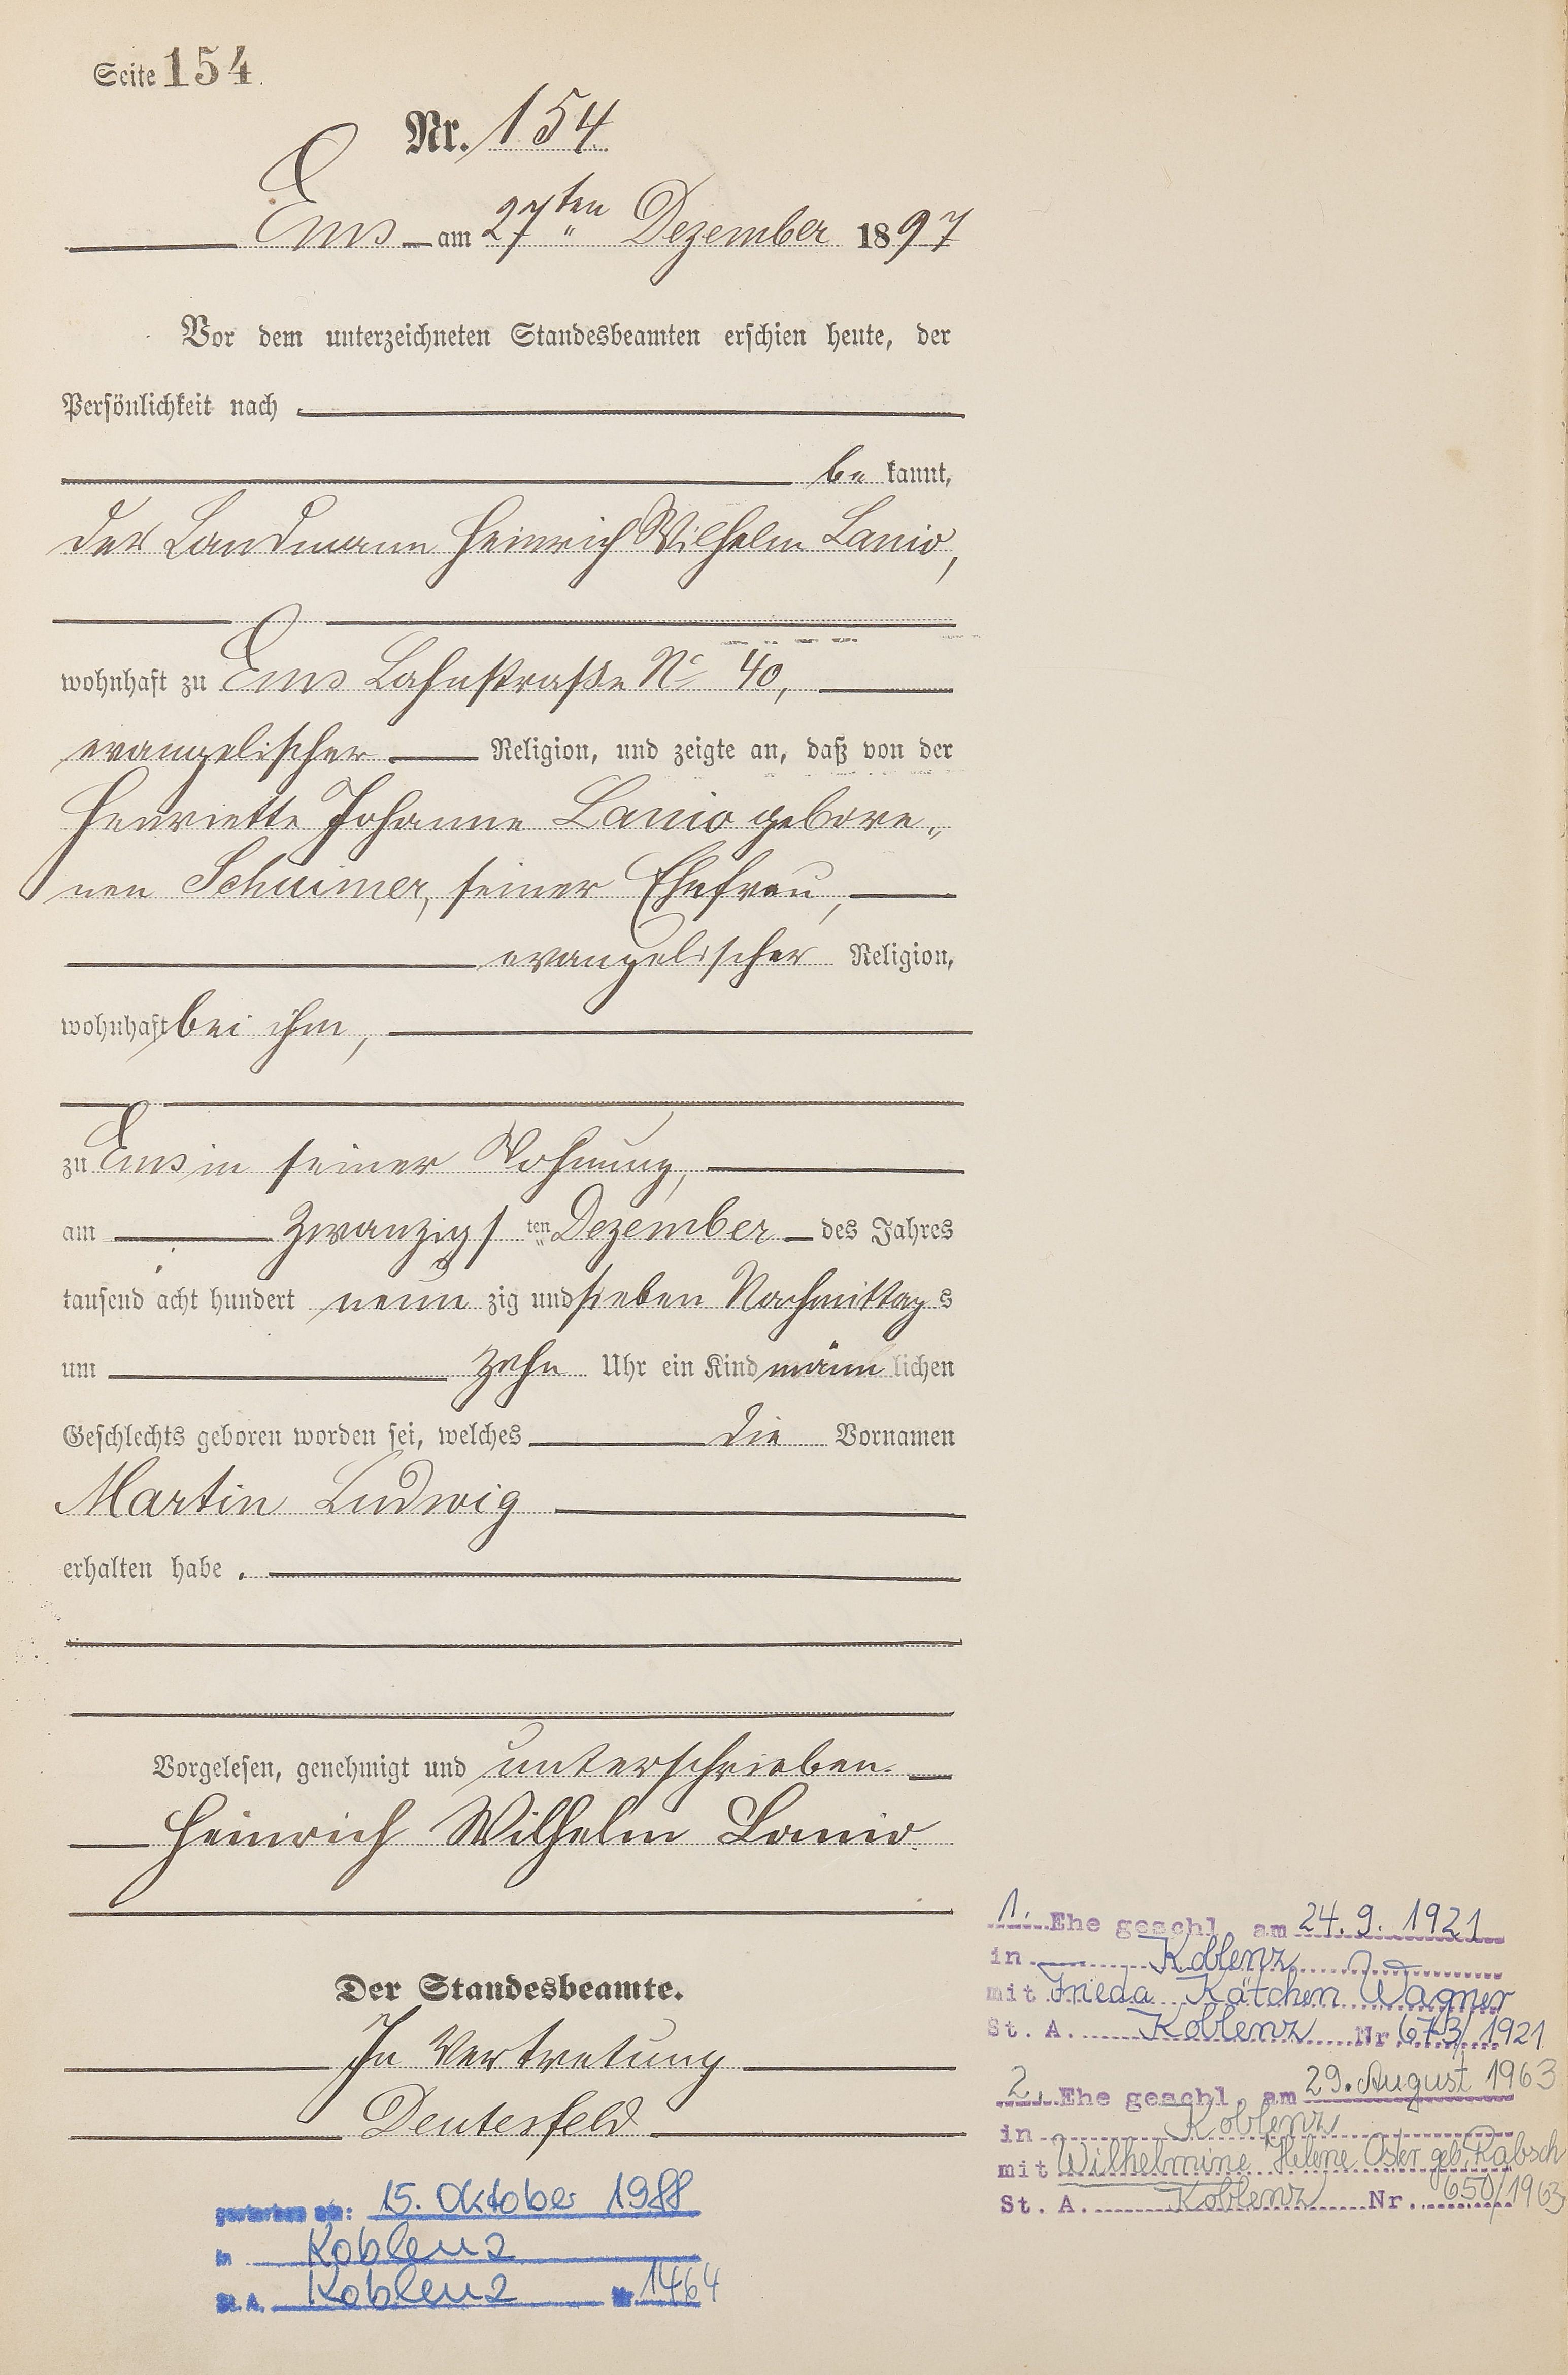 Seite 154.
Nr. 154.
Ems am 27ten Dezember 1897
Vor dem unterzeichneten Standesbeamten erschien heute, der
Persönlichkeit nach
be kannt,
der Landmann Heinrich Wilhelm Lanio,
wohnhaft zu Ems Lahnstraße No 40,
evangelischer Religion, und zeigte an, daß von der
Henriette Johanne Lanio gebore„
nen Schuimer, seiner Ehefrau,
evangelischer Religion,
wohnhaft bei ihm,
zu Ems in seiner Wohnung,
am zwanzigsten Dezember des Jahres
tausend acht hundert neun zig und sieben Nachmittags
um zehn Uhr ein Kind männlichen
Geschlechts geboren worden sei, welches die Vornamen
Martin Ludwig
erhalten habe.
Vorgelesen, genehmigt und unterschrieben.
Heinrich Wilhelm Lanio.
Der Standesbeamte.
In Vertretung
Deutesfeld
gestorben am: 15. Oktober 1988
in Koblenz
St. A. Koblenz Nr. 1464
1. Ehe geschl. am 24.9.1921
in Koblenz
mit Frieda Kätchen Wagner
St. A. Koblenz Nr 673/1921
2. Ehe geschl. am 29. August 1963
in Koblenz
mit Wilhelmine Helene Oster geb. Rabsch
St. A. Koblenz Nr. 650/1963